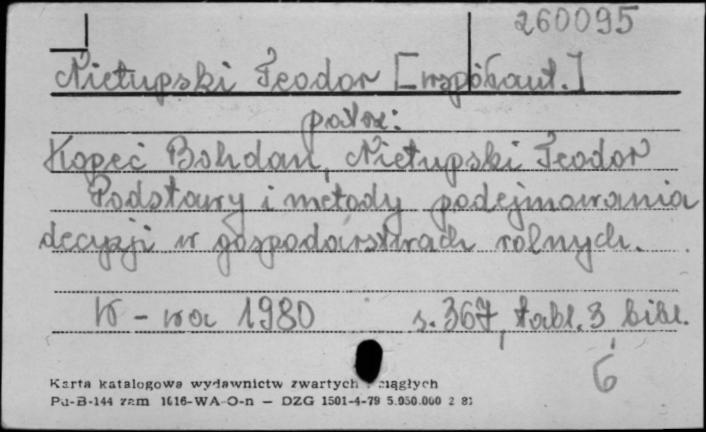 260095
Nietupski Teodor [współaut.]
patrz:
Kopeć Bohdan, Nietupski Teodor
Podstawy i metody podejmowania
decyzji w gospodarstwach rolnych.
W-wa 1980 s. 367, tabl. 3 bibl.
6
Karta katalogowa wydawnictw zwartych i ciągłych
Pu-B-144 zam 1616-WA-O-n — DZG 1501-4-79 5.050.000 2 81